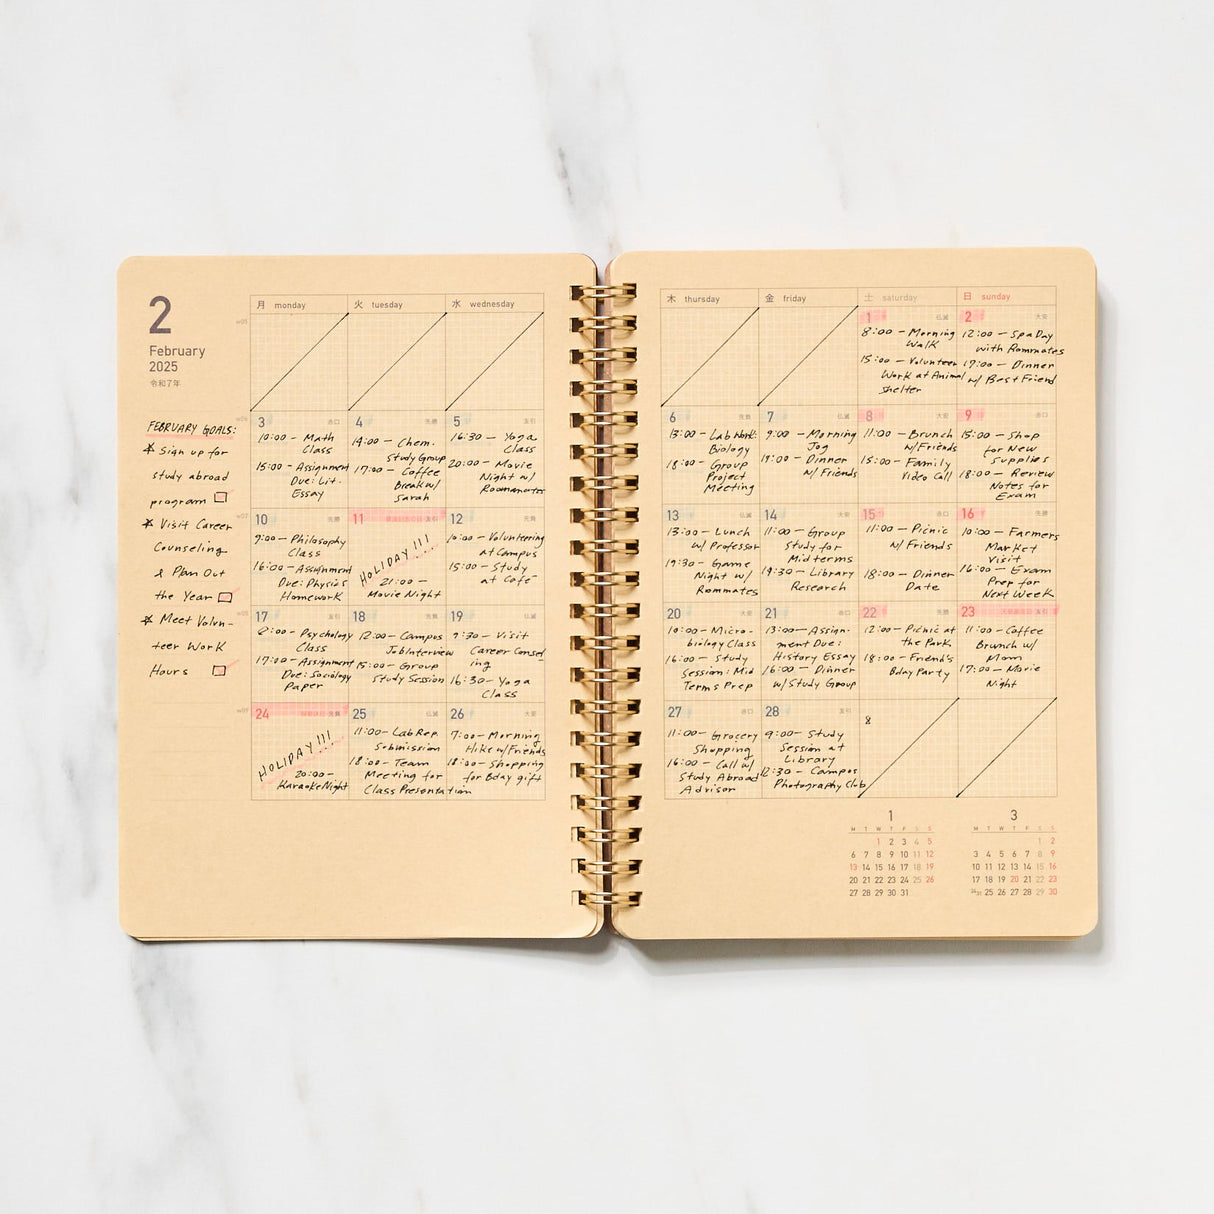 2
February
2025
令和7年
FEBRUARY GOALS:
* Sign up for
study abroad
program
* Visit Career
Counseling
& Plan Out
the Year
* Meet Volun-
teer Work
Hours
月 monday
火 tuesday
水 wednesday
木 thursday
金 friday
土 saturday
日 sunday
w05
1 仏滅
8:00 – Morning
Walk
15:00 – Volunteer
Work at Animal
Shelter
2 大安
12:00 – Spa Day
with Rommates
17:00 – Dinner
w/ Best Friend
w06
3 赤口
10:00 – Math
Class
15:00 – Assignment
Due: Lit.
Essay
4 先勝
14:00 – Chem.
Study Group
17:00 – Coffee
Break w/
Sarah
5 友引
16:30 – Yoga
Class
20:00 – Movie
Night w/
Roomanates
6 先負
13:00 – Lab Work:
Biology
18:00 – Group
Project
Meeting
7 仏滅
9:00 – Morning
Jog
19:00 – Dinner
w/ Friends
8 大安
11:00 – Brunch
w/ Friends
15:00 – Family
Video Call
9 赤口
15:00 – Shop
for New
Supplies
18:00 – Review
Notes for
Exam
w07
10 先勝
9:00 – Philosophy
Class
16:00 – Assignment
Due: Physics
Homework
11 建国記念の日 友引
HOLIDAY!!!
21:00 –
Movie Night
12 先負
10:00 – Volunteering
at Campus
15:00 – Study
at Café
13 仏滅
13:00 – Lunch
w/ Professor
19:30 – Game
Night w/
Rommates
14 大安
11:00 – Group
Study for
Midterms
19:30 – Library
Research
15 赤口
11:00 – Picnic
w/ Friends
18:00 – Dinner
Date
16 先勝
10:00 – Farmers
Market
Visit
16:00 – Exam
Prep for
Next Week
17 友引
Psychology
Class
17:00 – Assignment
Due: Sociology
Paper
18 先負
12:00 – Campus
Job Interview
15:00 – Group
Study Session
19 仏滅
9:30 – Visit
Career Consel
ing
16:30 – Yoga
Class
20 大安
10:00 – Micro-
biology Class
16:00 – Study
Session: Mid
Terms Prep
21 赤口
13:00 – Assign-
ment Due:
History Essay
16:00 – Dinner
w/ Study Group
22 先勝
12:00 – Picnic at
the Park
18:00 – Friend's
Bday Party
23 天皇誕生日 友引
11:00 – Coffee
Brunch w/
Mom
17:00 – Movie
Night
w09
24 振替休日 先負
HOLIDAY!!!
20:00 –
Karaoke Night
25 仏滅
11:00 – Lab Rep.
Submission
18:00 – Team
Meeting for
Class Presentation
26 大安
7:00 – Morning
Hike w/ Friends
18:00 – Shopping
for Bday gift
27 赤口
11:00 – Grocery
Shopping
16:00 – Call w/
Study Abroad
Advisor
28 友引
9:00 – Study
Session at
Library
12:30 – Campus
Photography Club
8
1
M T W T F S S
1 2 3 4 5
6 7 8 9 10 11 12
13 14 15 16 17 18 19
20 21 22 23 24 25 26
27 28 29 30 31
3
M T W T F S S
1 2
3 4 5 6 7 8 9
10 11 12 13 14 15 16
17 18 19 20 21 22 23
24/31 25 26 27 28 29 30